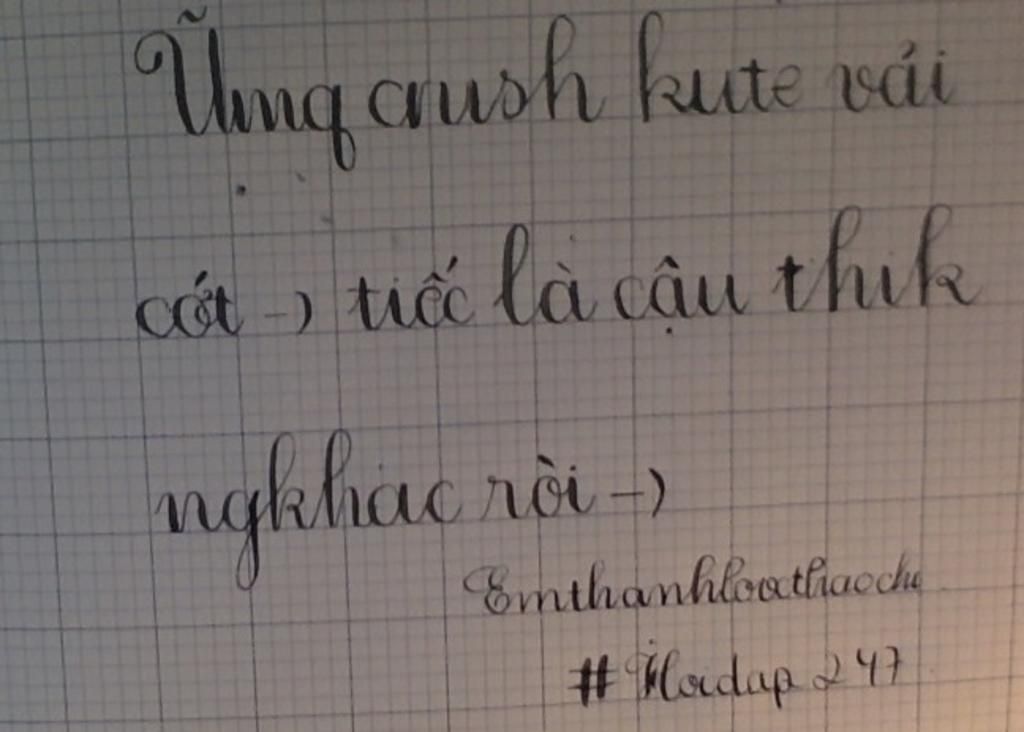 Ưng crush kute vải
cớt -) tiếc là cậu thik
ng khác rồi -)
Emthanhloathaochu
#Hoidap247